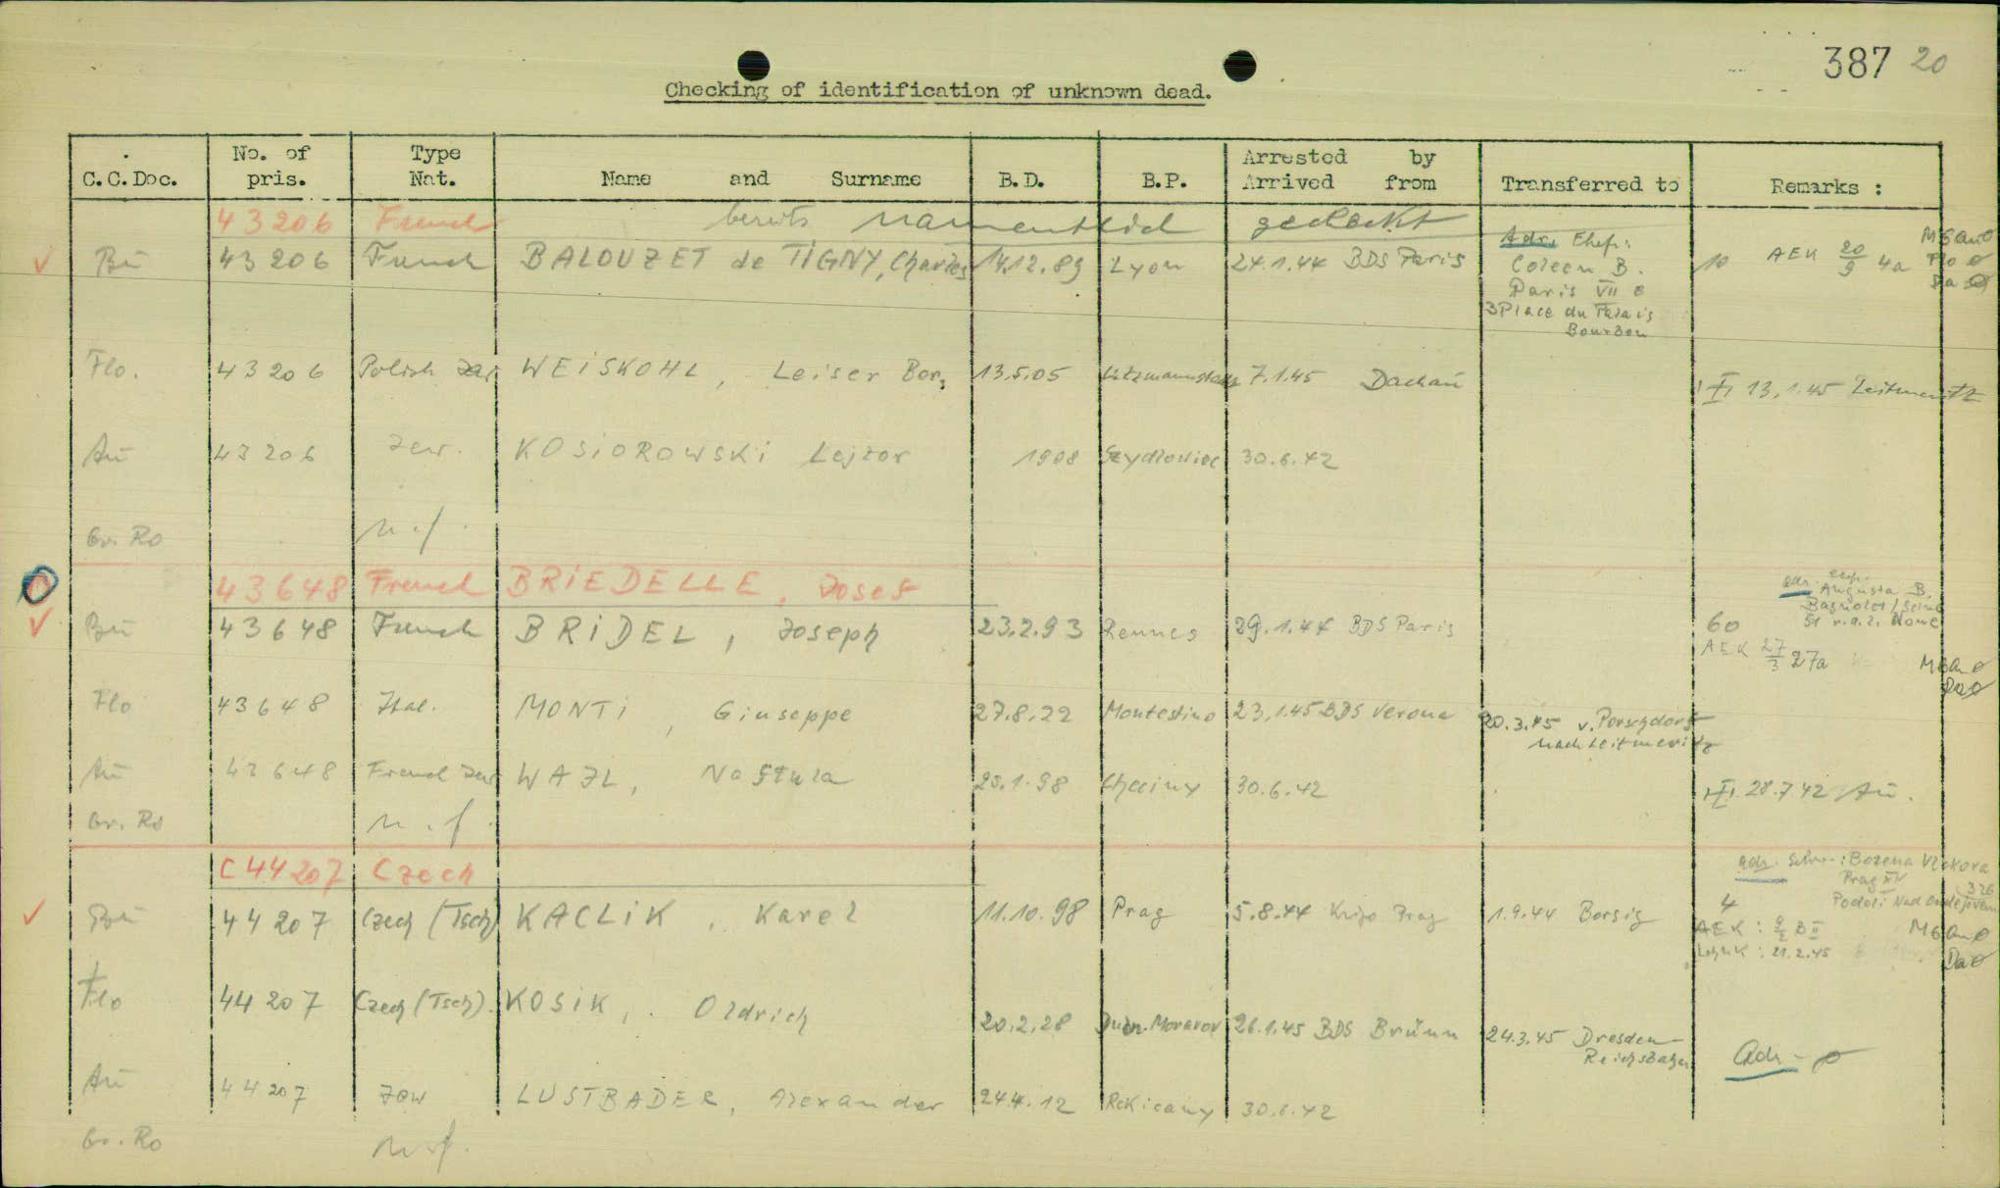 387 20
Checking of identification of unknown dead.
C.C.Doc. No. of pris. Type Nat. Name and Surname B.D. B.P. Arrested by Arrived from Transferred to Remarks :
43206 French bereits namentlich gedeckt
Bu 43206 French BALOUZET de TIGNY, Charles 14.12.89 Lyon 24.1.44 BDS Paris
Adr. Ehefr:
Coleen B.
Paris VII e
3 Place du Palais
Bourbon
10 AEK 20/9 4a
Flo. 43206 Polish Jew WEISKOHL, Leiser Ber, 13.5.05 Litzmannstadt 7.1.45 Dachau 13.1.45 Leitmeritz
Au 43206 Jew. KOSIOROWSKI Lejzor 1908 Szydlowiec 30.6.42
Gr. Ro n.f.
43648 French BRIEDELLE, Josef
Bu 43648 French BRIDEL, Joseph 23.2.93 Rennes 29.1.44 BDS Paris
Augusta B.
60
AEK 27/3 27a
Flo 43648 Ital. MONTI, Giuseppe 27.8.22 23.1.45 BDS Verona 20.3.45 v. Porschdorf
nach Leitmeritz
Au 43648 French Jew WAJL, Naftula 25.1.98 Checiny 30.6.42 28.7.42 Au.
Gr. Ro n.f.
C44207 Czech
adr. : Bozena Vlckova
Prag XV
Bu 44207 Czech (Tsch) KACLIK, Karel 11.10.98 Prag 5.8.44 Kripo Prag 1.9.44 Borsig 4
AEK :
: 21.2.45
Flo 44207 Czech (Tsch). KOSIK, Oldrich 20.2.28 26.1.45 BDS Brünn 24.3.45 Dresden-
Reichsbahn
Adr - ø
Au 44207 Jew LUSTBADER, Alexander 24.4.12 Rokicany 30.6.42
Gr. Ro n.f.